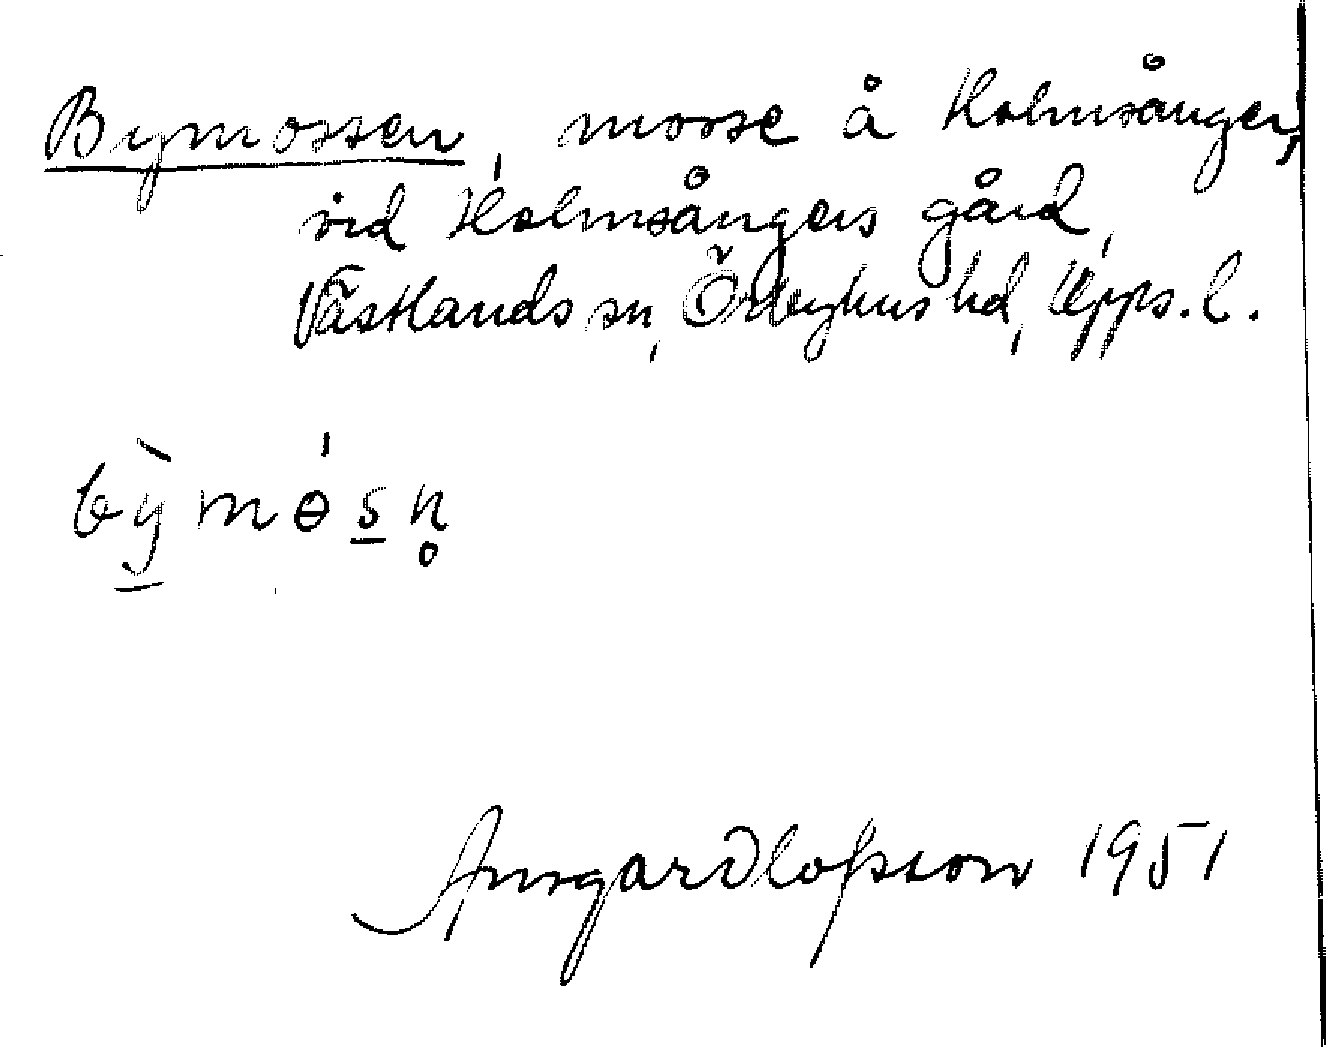 Bymossen, mosse å Holmsånger,
vid Holmsångers gård,
Västlands sn, Örbyhus hd, Upps. l.
bỳ̠mɵ́s̠n̥
Ansgar Olofsson 1951